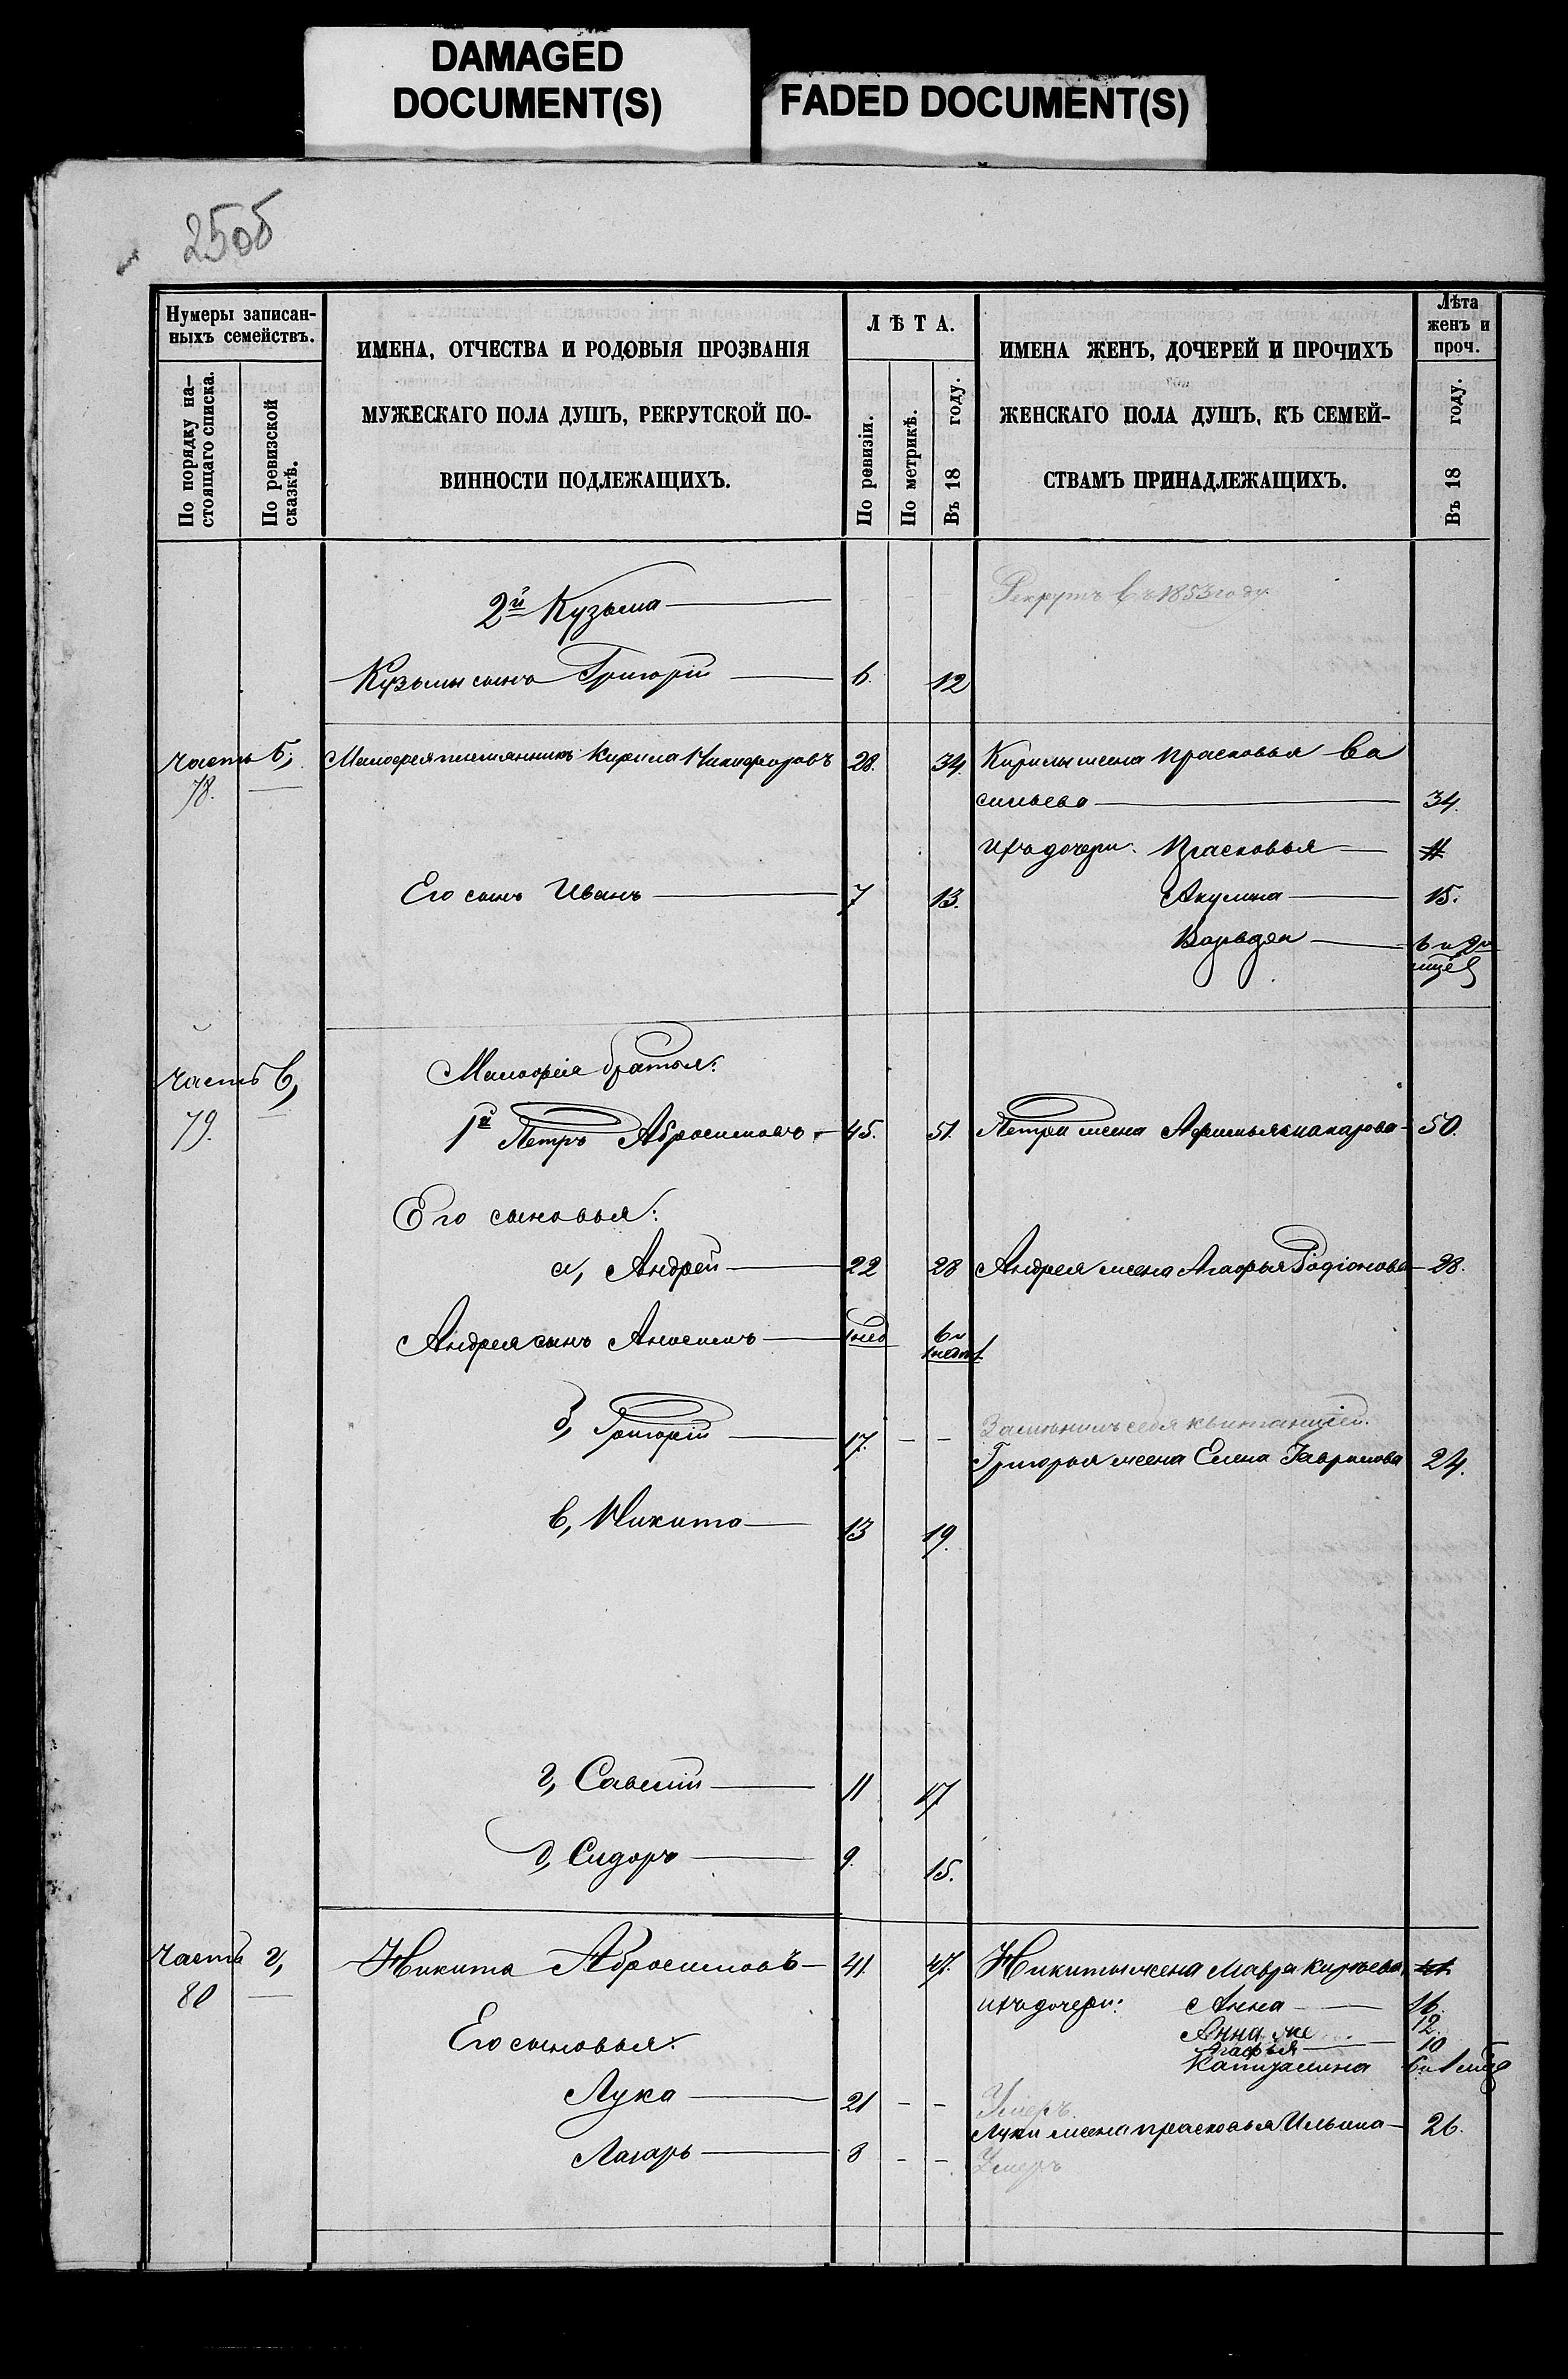 DAMAGED
DOCUMENT(S)
FADED DOCUMENT(S)
250б
Нумеры записан-
ныхъ семействъ.
По порядку на-
стоящаго списка.
По ревизской
сказкѣ.
ИМЕНА, ОТЧЕСТВА И РОДОВЫЯ ПРОЗВАНІЯ
МУЖЕСКАГО ПОЛА ДУШЪ, РЕКРУТСКОЙ ПО-
ВИННОСТИ ПОДЛЕЖАЩИХЪ.
ЛѢТА.
По ревизіи.
По метрикѣ.
Въ 18 году.
ИМЕНА ЖЕНЪ, ДОЧЕРЕЙ И ПРОЧИХЪ
ЖЕНСКАГО ПОЛА ДУШЪ, КЪ СЕМЕЙ-
СТВАМЪ ПРИНАДЛЕЖАЩИХЪ.
Лѣта
женъ и
проч.
Въ 18 году.
2й Кузьма — - - Рекрутъ въ 1853 году
Кузьмы сынъ Григорій — 6. 12
Часть б, племянникъ Кирила Никифоровъ 28. 34. Кирилы жена Прасковья Ва
78. — сильева — 34.
ихъ дочери: Прасковья —
Его сынъ Иванъ — 7 13. Акулина — 15.
6 и 9и
мцѣв
Часть в, братья:
79. 1й Петръ Абросимовъ — 45. 51. Петра жена Макарова — 50.
Его сыновья:
а, Андрей — 22 28 Андрея жена Агафья Родіонова — 28.
Андрея сынъ — 6 и
б, Григорій — 17. - - Замѣнилъ себя квитанціей.
Григорья жена Елена Гаврилова 24.
в, Никита — 13 19.
г, Савелій — 11 17
д, Сидоръ — 9. 15.
Часть г, Никита Абросимовъ — 41. 47. Никиты жена Мавра
80 — ихъ дочери: Анна — 16.
Анна же — 12.
Его сыновья: Агафья — 10
Капитолина 6 и 1 мцѣ
Лука — 21 - - Умеръ.
Луки жена Прасковья Ильина — 26.
Лазарь — 8 - - Умеръ